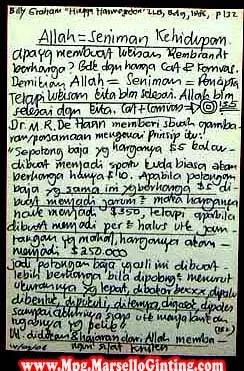 Billy Graham "Hingga Harmagedon" LLB, Bdg, 1986, p 132
Allah = Seniman Kehidupan
Apaya membuat lukisan Rembrandt
berharga? Bdk dan harga Cat & Kanvas.
Demikian Allah = Seniman = Pencipta
Tetapi lukisan kita blm selesai. Allah blm
selesai dgn kita. Cat + kanvas →
Dr. M.R. De Haan memberi sbuah gamba-
ran mengenai prinsip itu:
"Sepotong baja yg harganya $5 kalau
dibuat menjadi spatu kuda biasa akan
berharga hanya $10. Apabila potongan
baja yg sama ini yg berharga $5 di-
buat menjadi jarum² maka harganya
naik menjadi $350, tetapi apabila
dibuat menjadi per² halus utk jam
tangan yg mahal, harganya akan
menjadi $250.000
Jadi potongan baja yg asli ini dibuat
lebih berharga bila dipotong menurut
ukurannya yg tepat, dibakar
dibentuk, ditempa, digosok, dipoles
sampai akhirnya siap utk menjalankan
tugasnya yg pelik"
didikan & hajaran dari Allah memba-
ngun sifat Kristen
www.Mpg.MarselloGinting.com